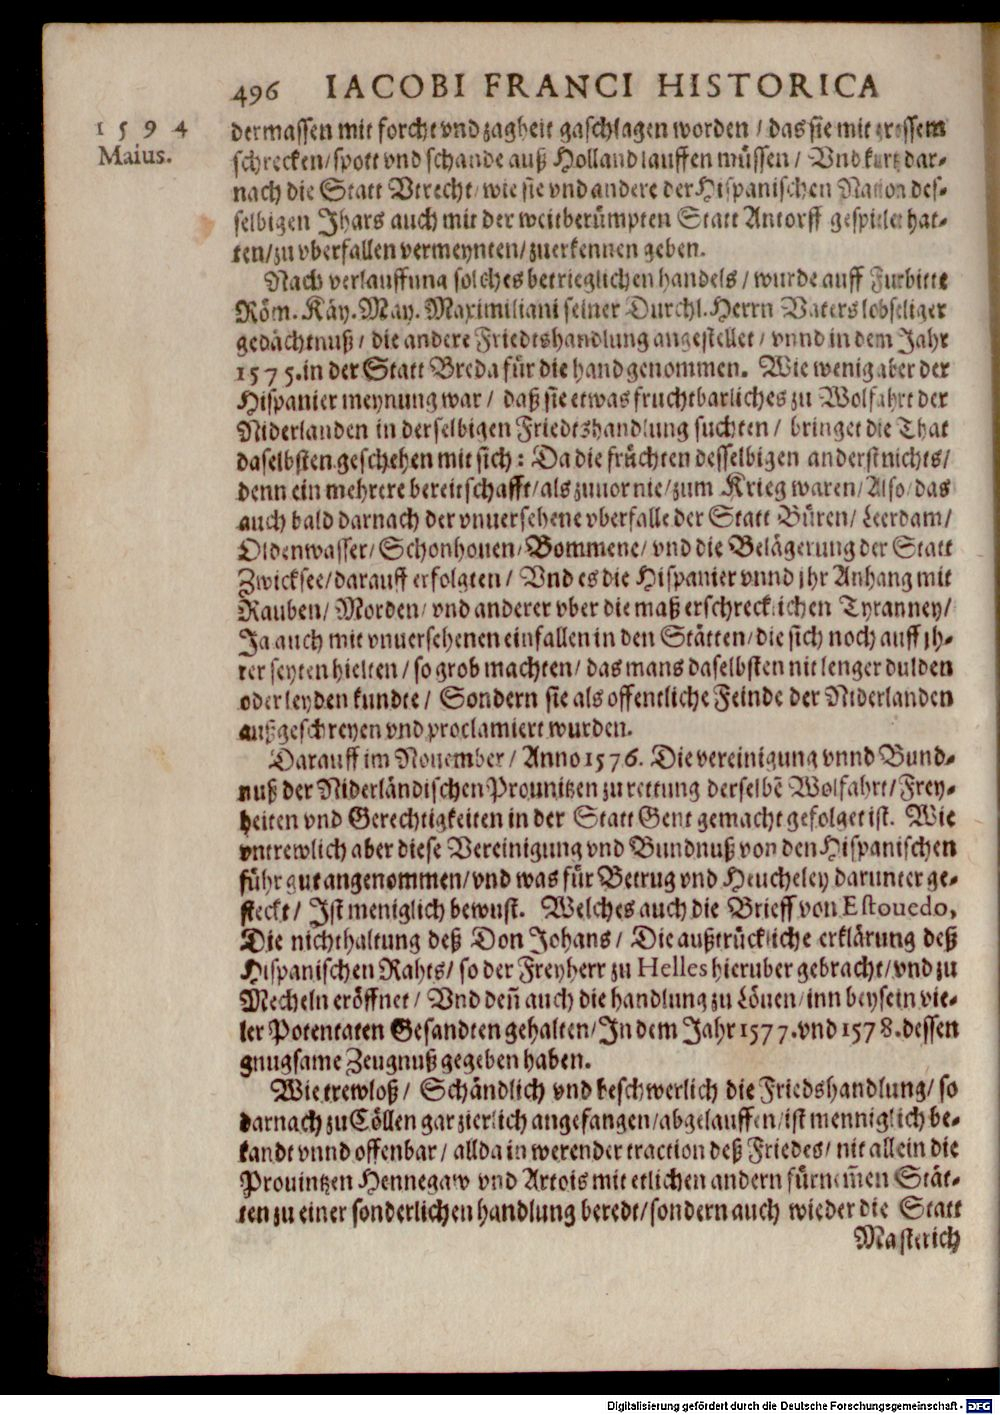 496 IACOBI FRANCI HISTORICA
1594
Maius.
dermassen mit forcht vnd zagheit gaschlagen worden / das sie mit grossem
schrecken / spott vnd schande auß Holland lauffen müssen / Vnd kurtz dar-
nach die Statt Vtrecht / wie sie vnd andere der Hispanischen Nation des-
selbigen Jhars auch mit der weitberümpten Statt Antorff gespielet hat-
ten / zu vberfallen vermeynten / zuerkennen geben.
Nach verlauffung solches betrieglichen handels / wurde auff Furbitte
Röm. Käy. May. Maximiliani seiner Durchl. Herrn Vaters lobseliger
gedächtnuß / die andere Friedtshandlung angestellet / vnnd in dem Jahr
1575. in der Statt Breda für die hand genommen. Wie wenig aber der
Hispanier meynung war / daß sie etwas fruchtbarliches zu Wolfahrt der
Niderlanden in derselbigen Friedtshandlung suchten / bringet die That
daselbsten geschehen mit sich: Da die früchten desselbigen anderst nichts /
denn ein mehrere bereitschafft / als zuuor nie / zum Krieg waren / Also / das
auch bald darnach der vnuersehene vberfalle der Statt Büren / Leerdam /
Oldenwasser / Schonhouen / Bommene / vnd die Belägerung der Statt
Zwicksee / darauff erfolgten / Vnd es die Hispanier vnnd jhr Anhang mit
Rauben / Morden / vnd anderer vber die maß erschrecklichen Tyranney /
Ja auch mit vnuersehenen einfallen in den Stätten / die sich noch auff jh-
rer seyten hielten / so grob machten / das mans daselbsten nit lenger dulden
oder leyden kundte / Sondern sie als offentliche Feinde der Niderlanden
außgeschreyen vnd proclamiert wurden.
Darauff im Nouember / Anno 1576. Die vereinigung vnnd Bund-
nuß der Niderländischen Prounitzen zu rettung derselbē Wolfahrt / Frey-
heiten vnd Gerechtigkeiten in der Statt Gent gemacht gefolget ist. Wie
vntrewlich aber diese Vereinigung vnd Bundnuß von den Hispanischen
führ gut angenommen / vnd was für Betrug vnd Heucheley darunter ge-
steckt / Ist meniglich bewust. Welches auch die Brieff von Estouedo,
Die nichthaltung deß Don Johans / Die außtrückliche erklärung deß
Hispanischen Rahts / so der Freyherr zu Helles hieruber gebracht / vnd zu
Mecheln eröffnet / Vnd deñ auch die handlung zu Löuen / inn beysein vie-
ler Potentaten Gesandten gehalten / In dem Jahr 1577. vnd 1578. dessen
gnugsame Zeugnuß gegeben haben.
Wie trewloß / Schändlich vnd beschwerlich die Friedshandlung / so
darnach zu Cöllen gar zierlich angefangen / abgelauffen / ist menniglich be-
kandt vnnd offenbar / allda in werender traction deß Friedes / nit allein die
Prouintzen Hennegaw vnd Artois mit etlichen andern fürnem̄en Stät-
ten zu einer sonderlichen handlung beredt / sondern auch wieder die Statt
Mastrich
Digitalisierung gefördert durch die Deutsche Forschungsgemeinschaft - DFG